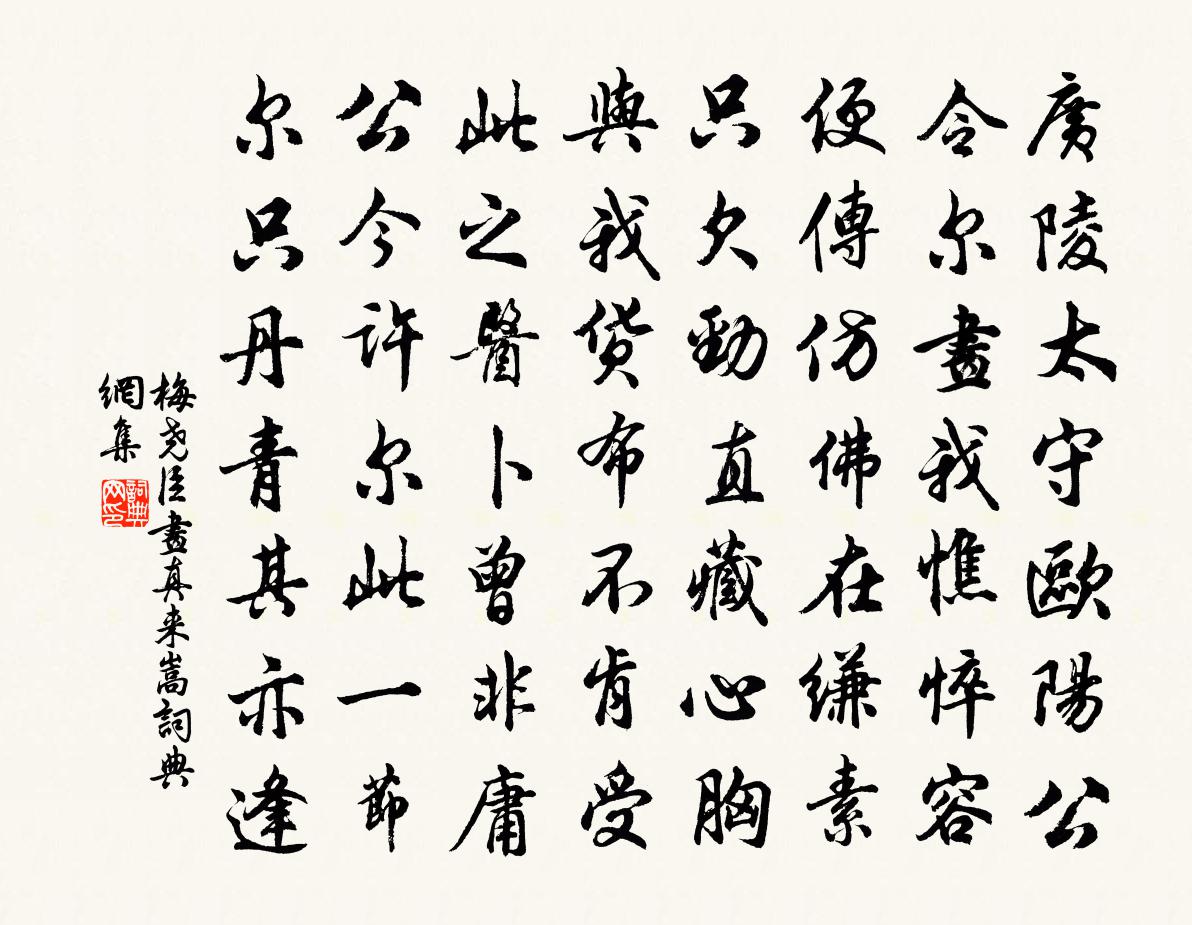 廣陵太守歐陽公
令尔畫我憔悴容
便傳仿佛在縑素
只欠勁直藏心胸
與我貨布不肯受
此之醫卜曾非庸
公今許尔此一節
尔只丹青其亦逢
梅堯臣畫真来嵩詞典
網集
詞典
网印